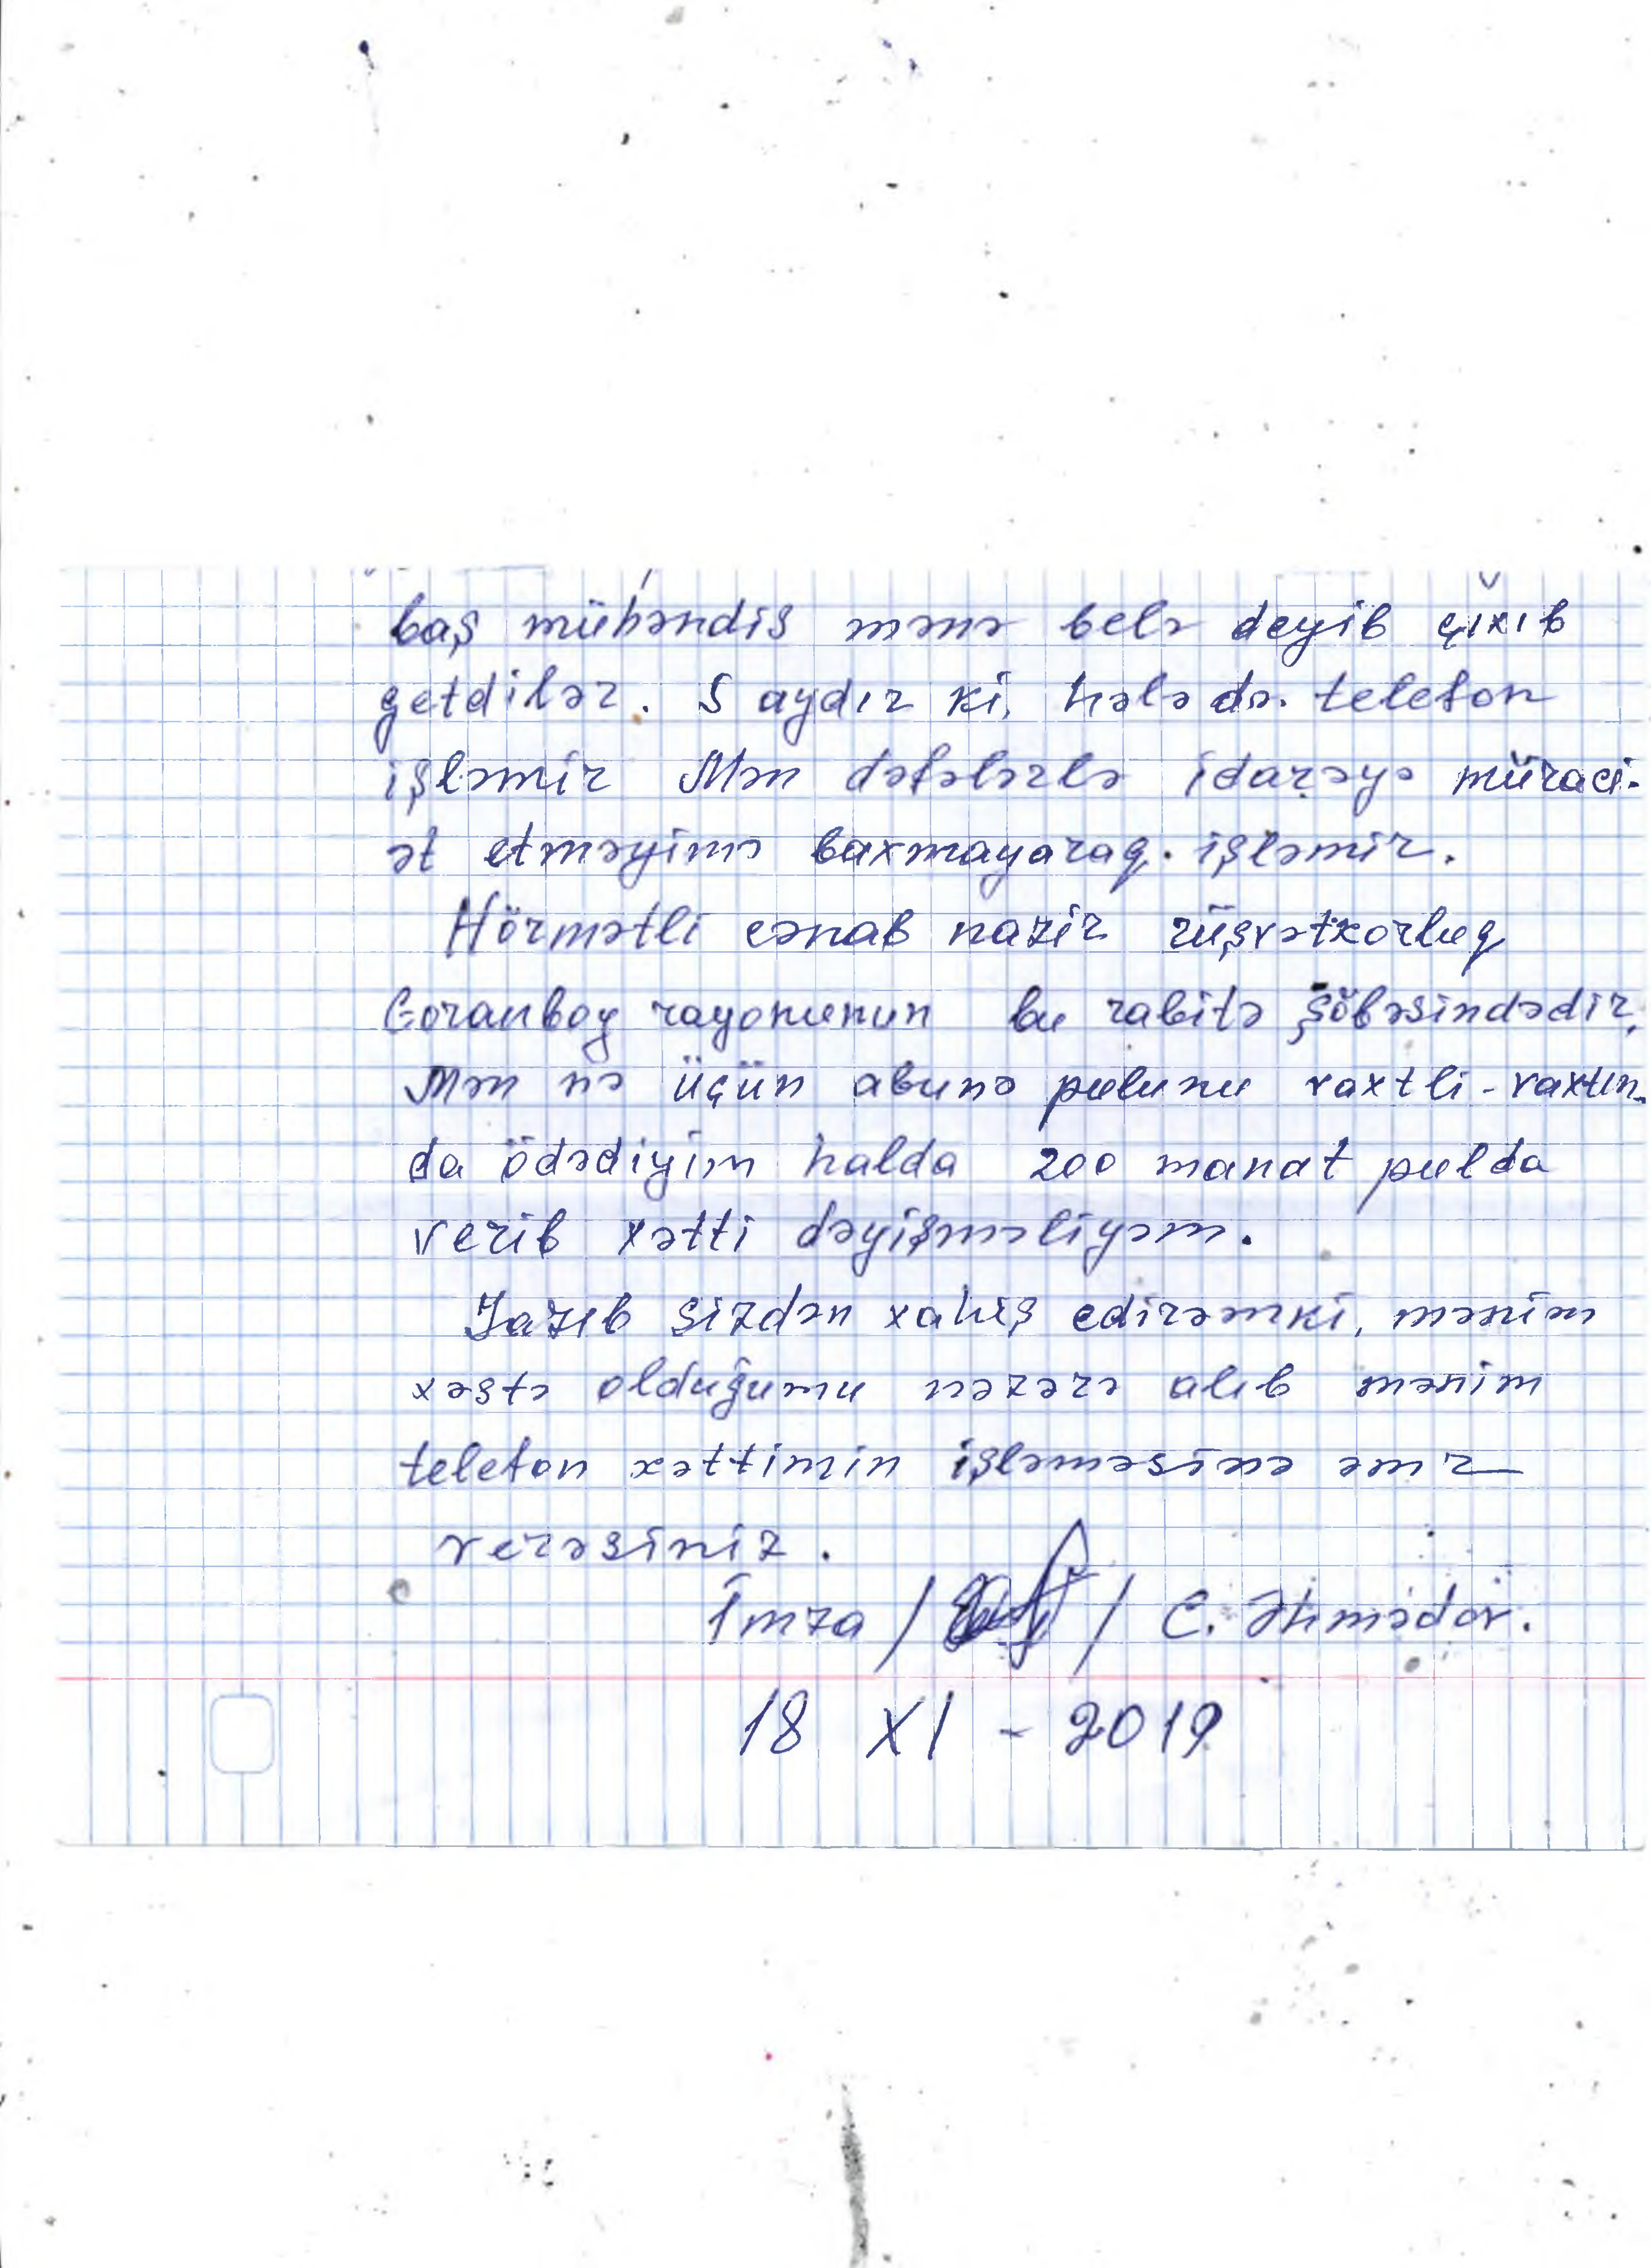 baş mühəndis mənə belə deyib çıxıb
getdilər. 5 aydır ki, hələ də. telefon
işləmir Mən dəfələrlə idarəyə müraci-
ət etməyimə baxmayaraq. işləmir.
Hörmətli cənab nazir rüşvətxorluq
Goranboy rayonunun bu rabitə şöbəsindədir,
Mən nə üçün abunə pulunu vaxtlı-vaxtın-
da ödədiyim halda 200 manat pulda
verib xətti dəyişməliyəm.
Yazıb sizdən xahiş edirəmki, mənim
xəstə olduğumu nəzərə alıb mənim
telefon xəttimin işləməsinə əmr
verəsiniz.
İmza / / E. Əhmədov.
18 XI - 2019